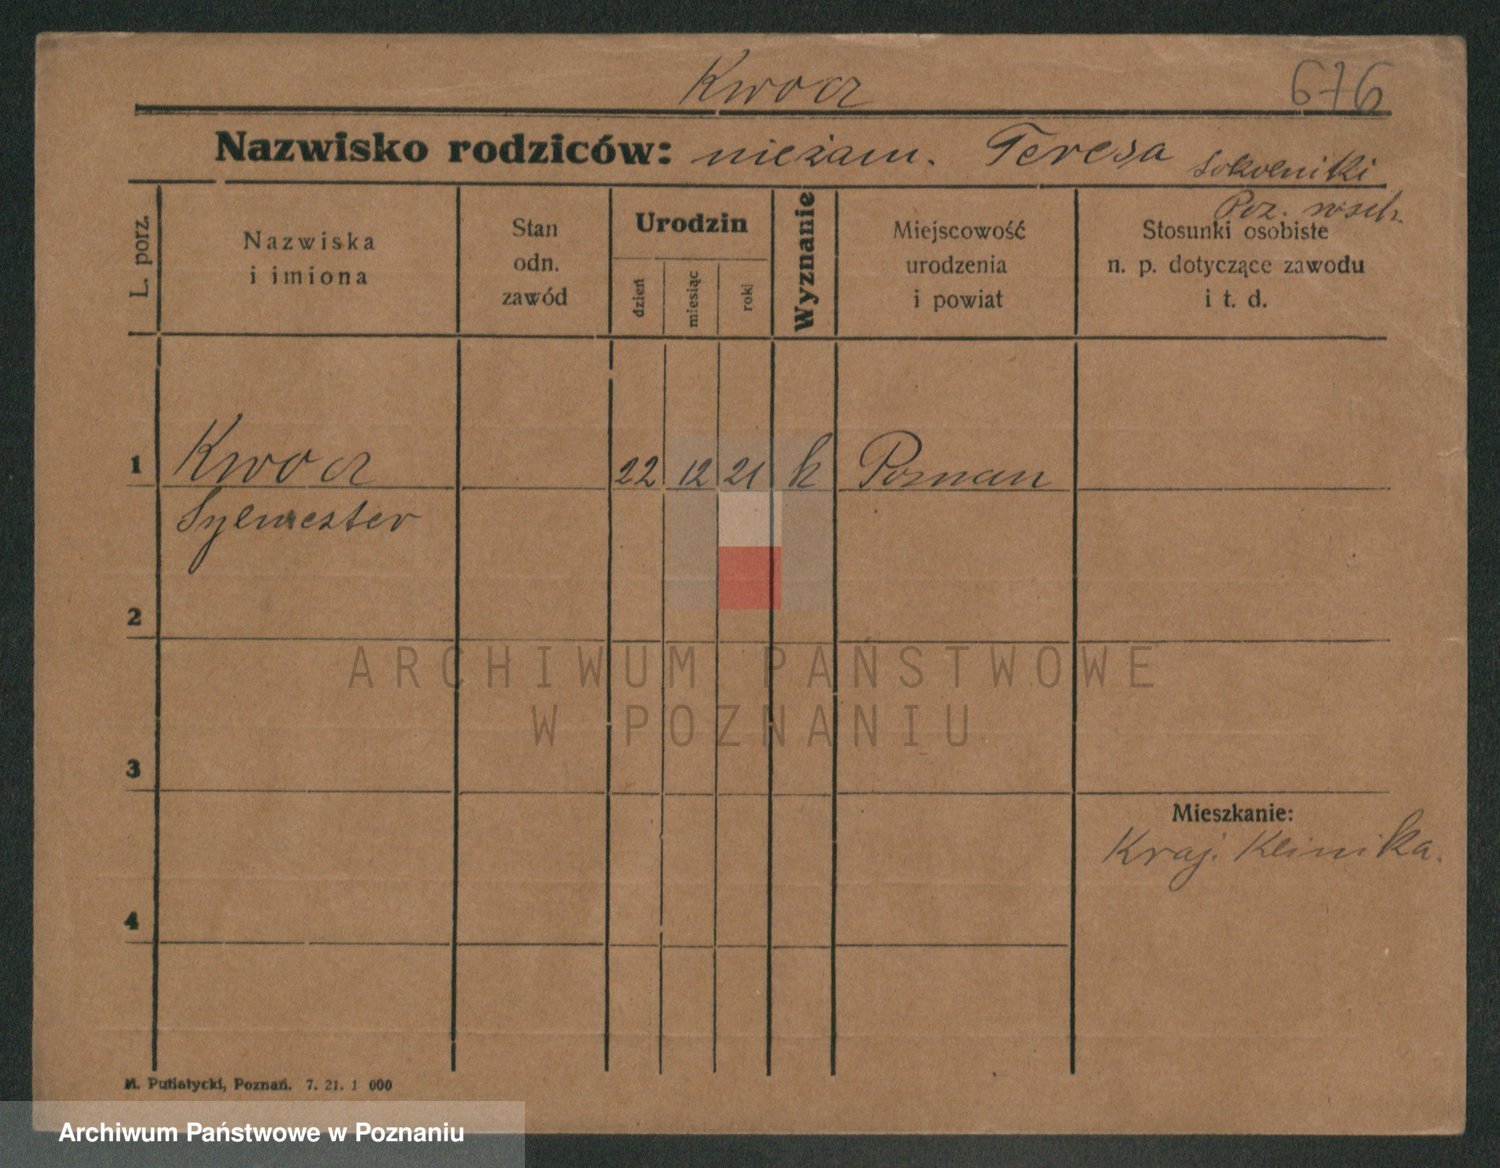 Kwocz
676
Nazwisko rodziców: niezam. Teresa Sokolniki
Poz. wsch.
L. porz.
Nazwiska
i imiona
Stan
odn.
zawód
Urodzin
dzień
miesiąc
rok
Wyznanie
Miejscowość
urodzenia
i powiat
Stosunki osobiste
n. p. dotyczące zawodu
i t. d.
1 Kwocz 22 12 21 k Poznan
Sylwester
2
3
4
Mieszkanie:
Kraj. Klinika.
M. Putiatycki, Poznań. 7. 21. 1 000
ARCHIWUM PAŃSTWOWE
W POZNANIU
Archiwum Państwowe w Poznaniu